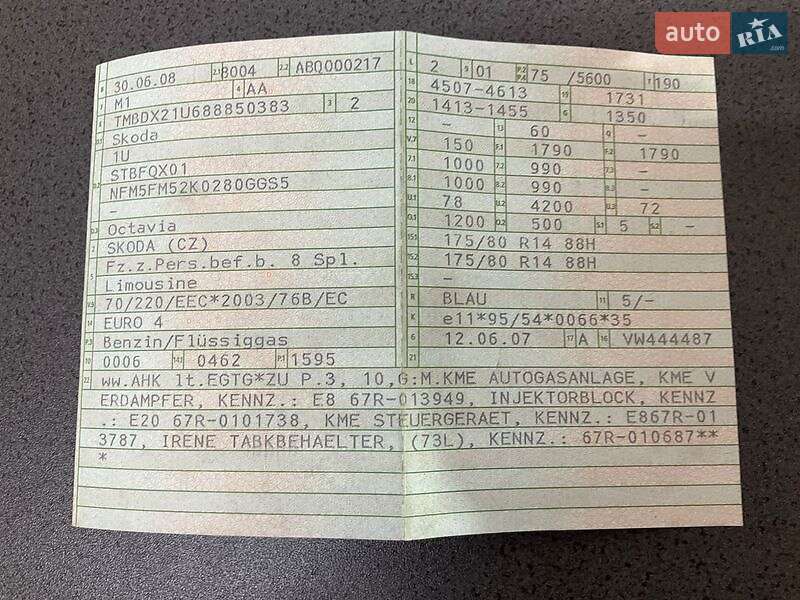 auto RIA .com
B 30.06.08 2.1 8004 2.2 ABQ000217
J M1 4 AA
E TMBDX21U688850383 3 2
D.1 Skoda
1U
D.2 STBFQX01
NFM5FM52K0280GGS5
–
D.3 Octavia
2 SKODA (CZ)
5 Fz.z.Pers.bef.b. 8 Spl.
Limousine
V.9 70/220/EEC*2003/76B/EC
14 EURO 4
P.3 Benzin/Flüssiggas
10 0006 14.1 0462 P.1 1595
L 2 9 01 P.2 P.4 75 /5600 T 190
18 4507-4613 19 1731
20 1413-1455 G 1350
12 – 13 60 Q –
V.7 150 F.1 1790 F.2 1790
7.1 1000 7.2 990 7.3 –
8.1 1000 8.2 990 8.3 –
U.1 78 U.2 4200 U.3 72
O.1 1200 O.2 500 S.1 5 S.2 –
15.1 175/80 R14 88H
15.2 175/80 R14 88H
15.3 –
R BLAU 11 5/–
K e11*95/54*0066*35
6 12.06.07 17 A 16 VW444487
21
22 WW.AHK lt.EGTG*ZU P.3, 10,G:M.KME AUTOGASANLAGE, KME V
ERDAMPFER, KENNZ.: E8 67R-013949, INJEKTORBLOCK, KENNZ
.: E20 67R-0101738, KME STEUERGERAET, KENNZ.: E867R-01
3787, IRENE TABKBEHAELTER, (73L), KENNZ.: 67R-010687**
*